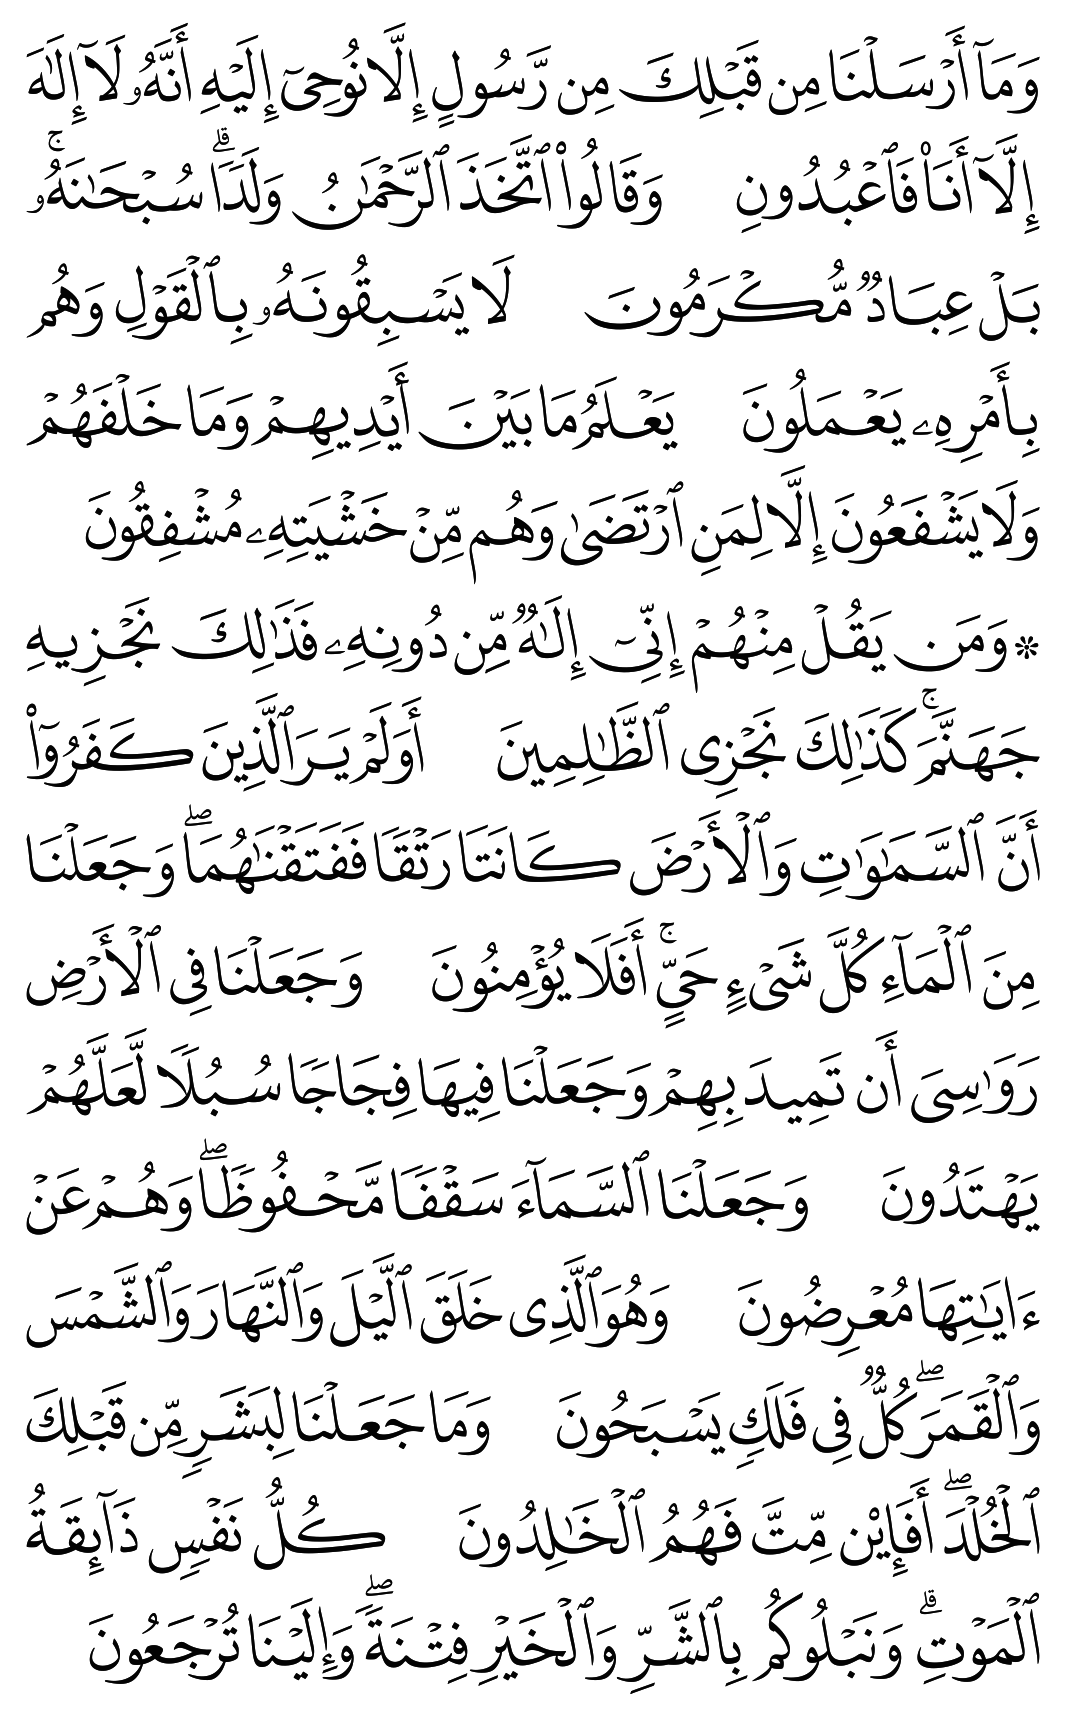 وَمَآ أَرْسَلْنَا مِن قَبْلِكَ مِن رَّسُولٍ إِلَّا نُوحِىٓ إِلَيْهِ أَنَّهُۥ لَآ إِلَٰهَ
إِلَّآ أَنَا۠ فَٱعْبُدُونِ وَقَالُوا۟ ٱتَّخَذَ ٱلرَّحْمَٰنُ وَلَدًا ۗ سُبْحَٰنَهُۥ ۚ
بَلْ عِبَادٌ مُّكْرَمُونَ لَا يَسْبِقُونَهُۥ بِٱلْقَوْلِ وَهُم
بِأَمْرِهِۦ يَعْمَلُونَ يَعْلَمُ مَا بَيْنَ أَيْدِيهِمْ وَمَا خَلْفَهُمْ
وَلَا يَشْفَعُونَ إِلَّا لِمَنِ ٱرْتَضَىٰ وَهُم مِّنْ خَشْيَتِهِۦ مُشْفِقُونَ
* وَمَن يَقُلْ مِنْهُمْ إِنِّىٓ إِلَٰهٌ مِّن دُونِهِۦ فَذَٰلِكَ نَجْزِيهِ
جَهَنَّمَ ۚ كَذَٰلِكَ نَجْزِى ٱلظَّٰلِمِينَ أَوَلَمْ يَرَ ٱلَّذِينَ كَفَرُوٓا۟
أَنَّ ٱلسَّمَٰوَٰتِ وَٱلْأَرْضَ كَانَتَا رَتْقًا فَفَتَقْنَٰهُمَا ۖ وَجَعَلْنَا
مِنَ ٱلْمَآءِ كُلَّ شَىْءٍ حَىٍّ ۚ أَفَلَا يُؤْمِنُونَ وَجَعَلْنَا فِى ٱلْأَرْضِ
رَوَٰسِىَ أَن تَمِيدَ بِهِمْ وَجَعَلْنَا فِيهَا فِجَاجًا سُبُلًا لَّعَلَّهُمْ
يَهْتَدُونَ وَجَعَلْنَا ٱلسَّمَآءَ سَقْفًا مَّحْفُوظًا ۖ وَهُمْ عَنْ
ءَايَٰتِهَا مُعْرِضُونَ وَهُوَ ٱلَّذِى خَلَقَ ٱلَّيْلَ وَٱلنَّهَارَ وَٱلشَّمْسَ
وَٱلْقَمَرَ ۖ كُلٌّ فِى فَلَكٍ يَسْبَحُونَ وَمَا جَعَلْنَا لِبَشَرٍ مِّن قَبْلِكَ
ٱلْخُلْدَ ۖ أَفَإِي۟ن مِّتَّ فَهُمُ ٱلْخَٰلِدُونَ كُلُّ نَفْسٍ ذَآئِقَةُ
ٱلْمَوْتِ ۗ وَنَبْلُوكُم بِٱلشَّرِّ وَٱلْخَيْرِ فِتْنَةً ۖ وَإِلَيْنَا تُرْجَعُونَ